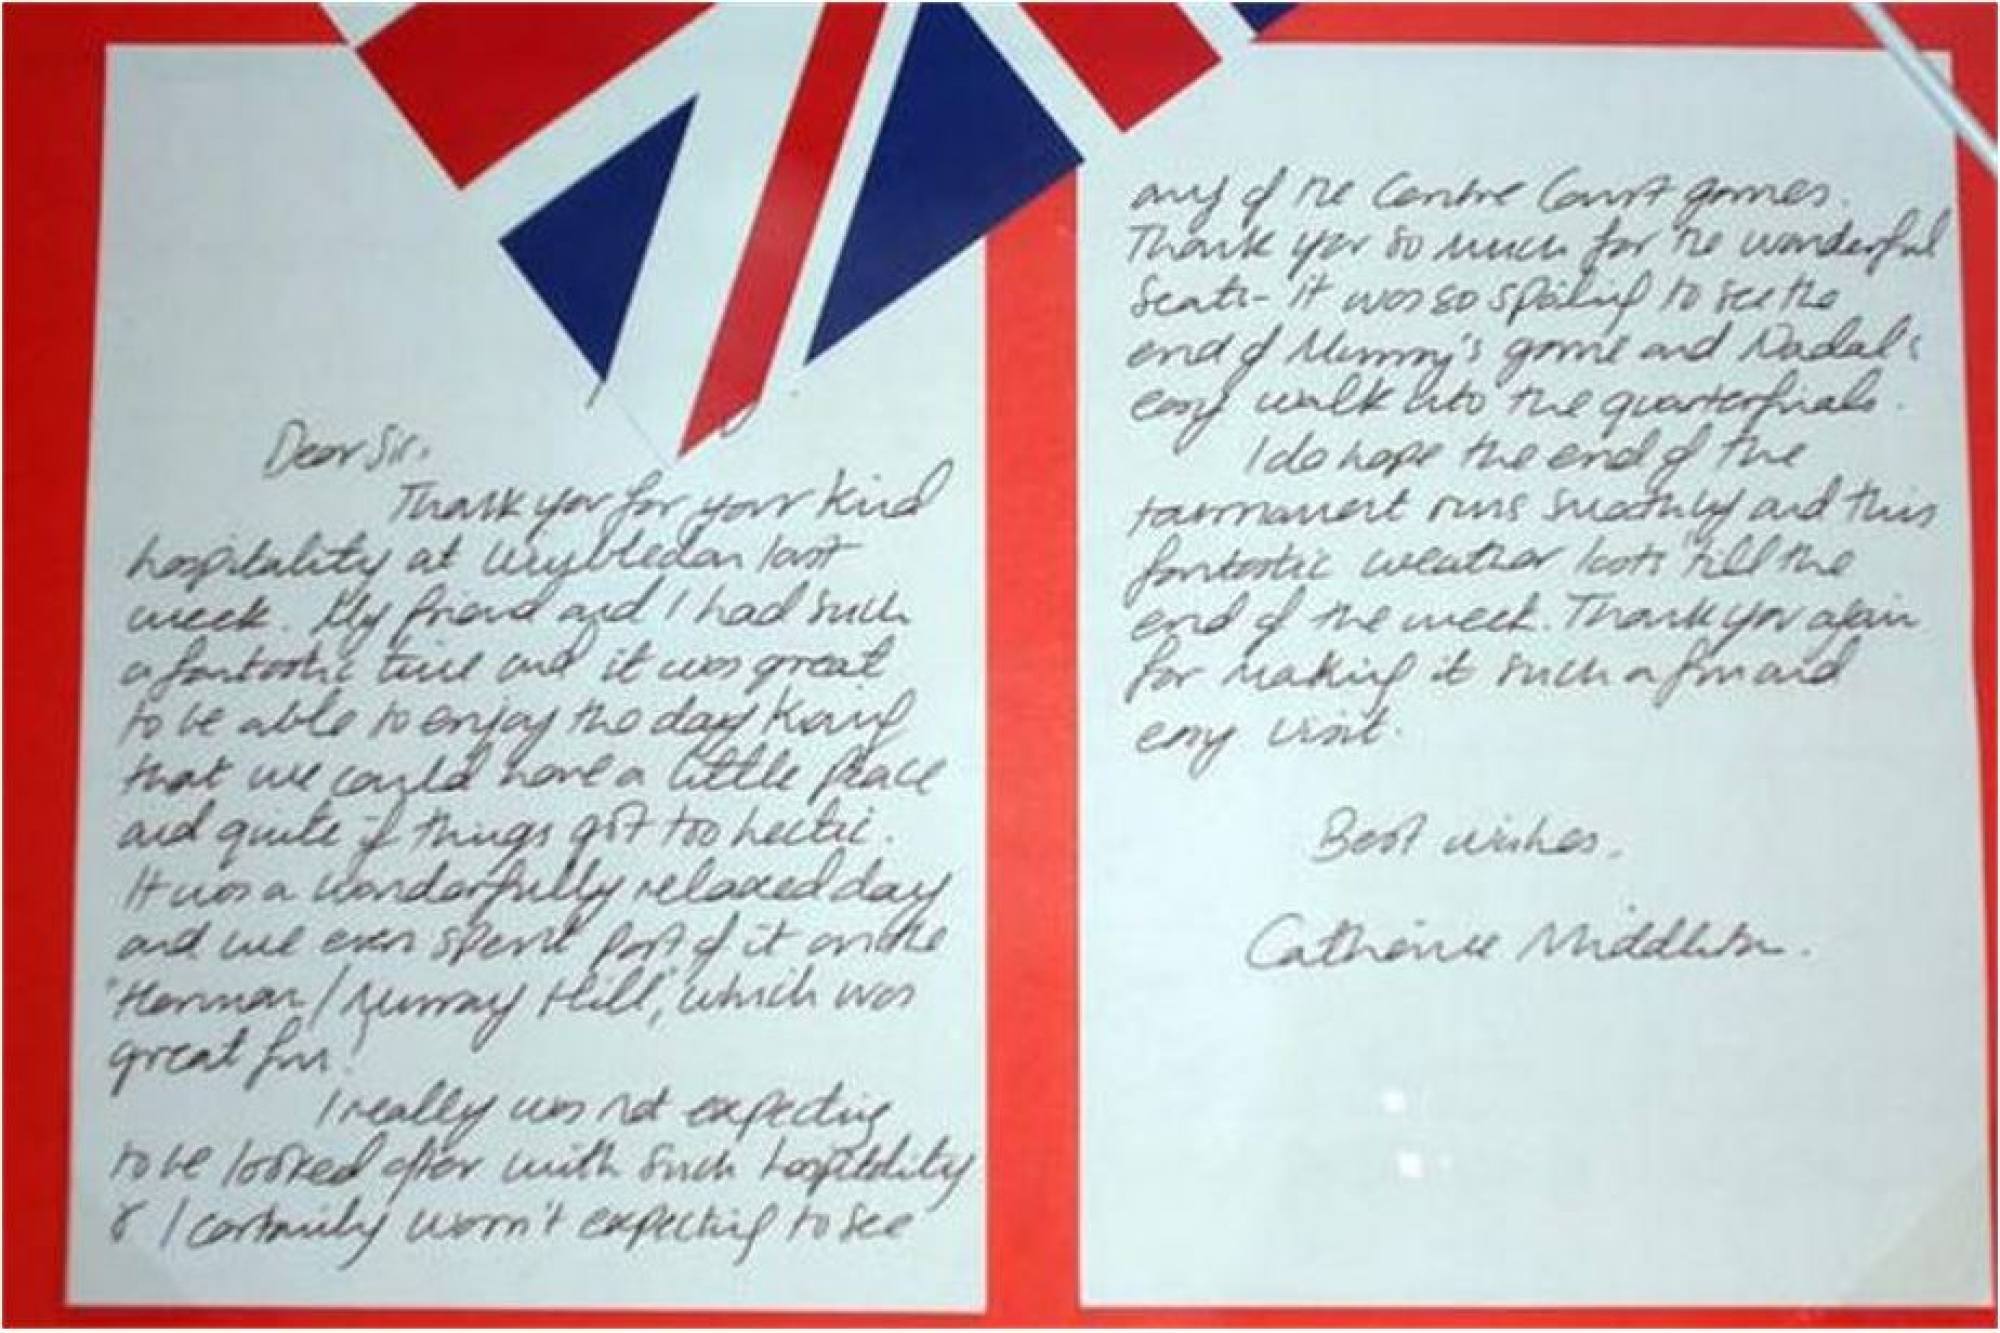 Dear Sir,
Thank you for your kind
hospitality at Wymbledon last
week. My friend and I had such
a fantastic time and it was great
to be able to enjoy the day knowing
that we could have a little peace
and quite if things got too hectic.
It was a wonderfully relaxed day
and we even spent part of it on the
"Henman / Murray Hill", which was
great fun!
I really was not expecting
to be looked after with such hospitality
& I certainly wasn't expecting to see
any of the Centre Court games.
Thank you so much for the wonderful
seats - it was so spoiling to see the
end of Murray's game and Nadal's
easy walk into the quarterfinals.
I do hope the end of the
tournament runs smoothly and this
fantastic weather lasts 'till the
end of the week. Thank you again
for making it such a fun and
easy visit.
Best wishes,
Catherine Middleton.